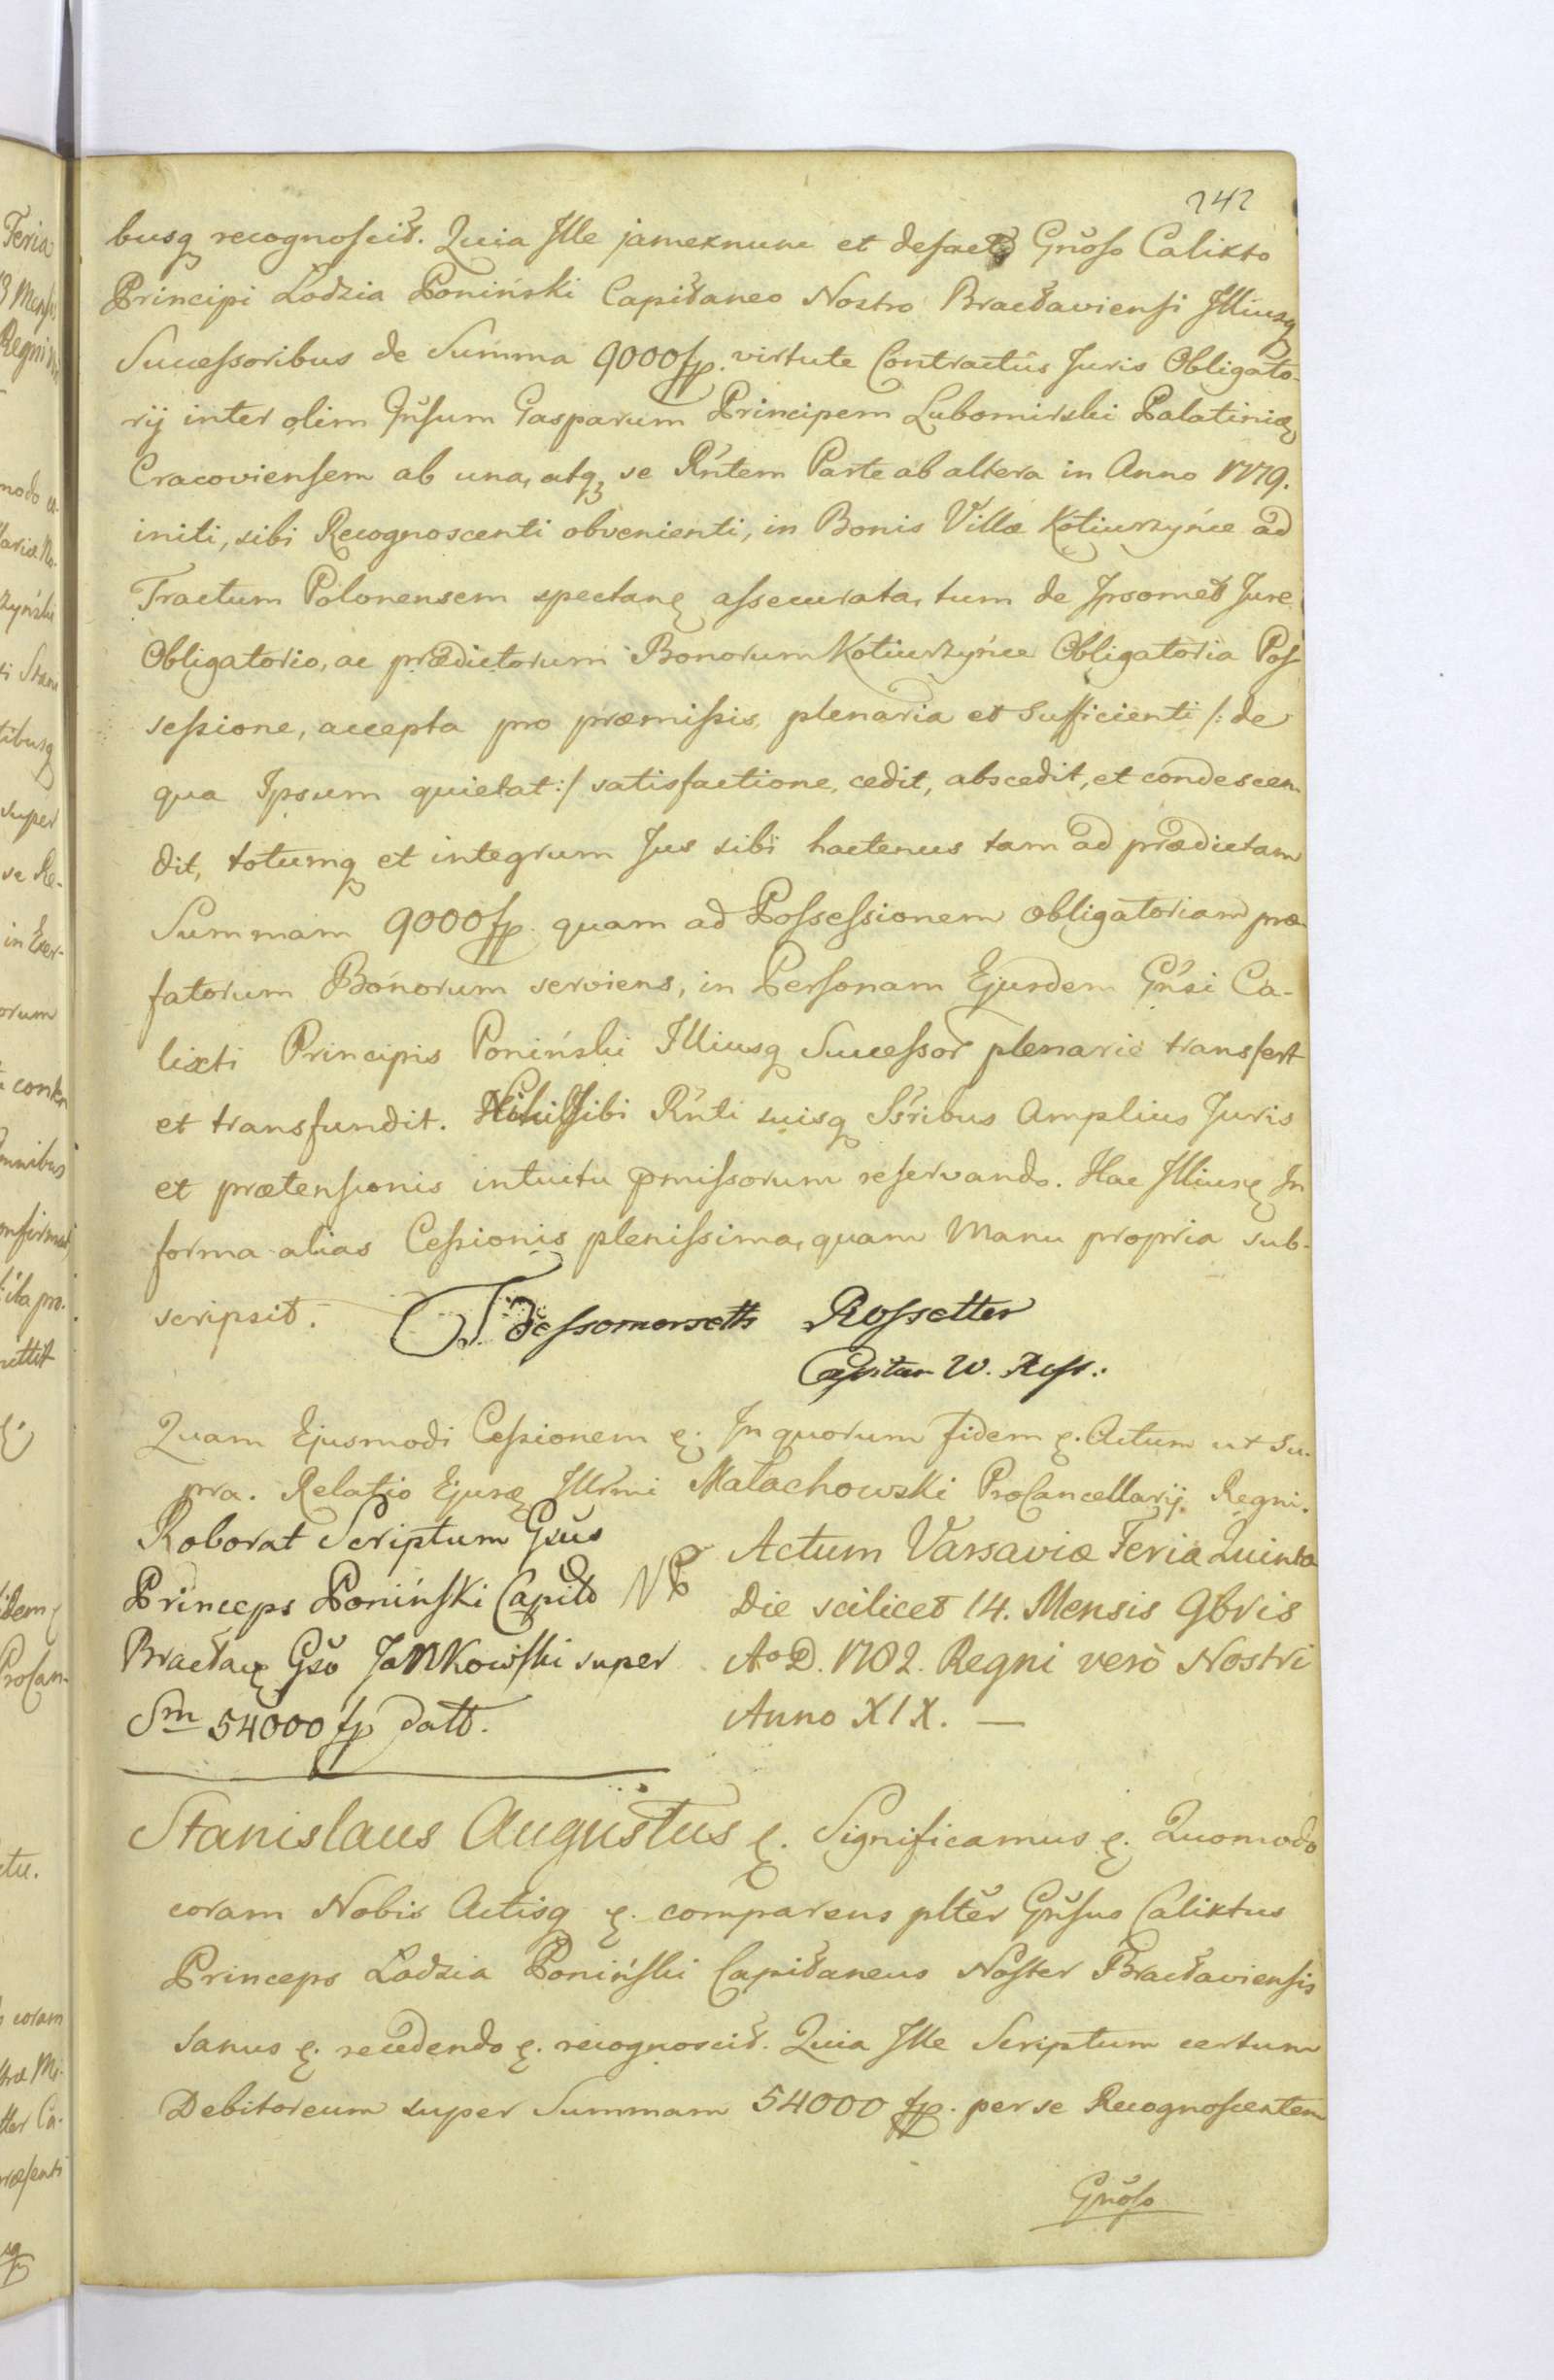 242
busq recognoscit. Quia Ille jamexnunc et defacto Gnoso Calixto
Principi Łodzia Poniński Capitaneo Nostro Bracłaviensi Illiusq
Successoribus de Summa 9000 fp. virtute Contractûs Juris Obligato-
rij inter olim Gnsum Gasparum Principem Lubomirski Palatinidę
Cracoviensem ab una, atq, se Rńtem Parte ab altera in Anno 1779.
initi, sibi Recognoscenti obvenienti, in Bonis Villæ Kotiurzyńce ad
Tractum Polonensem spectanę assecurata, tum de Ipsomet Jure
Obligatorio, ac prædictorum Bonorum Kotiurzyńce Obligatoria Pos-
sessione, accepta pro præmissis plenaria et Sufficienti /: de
qua Ipsum quietat :/ satisfactione, cedit, abscedit, et condescen-
dit, totumq et integrum Jus sibi hactenus tam ad prædictam
Summam 9000 fp. quam ad Possessionem obligatoriam præ-
fatorum Bonorum serviens, in Personam Ejusdem Gńsi Ca-
lixti Principis Poniński Illiusq Successor plenariè transfert
et transfundit. Nihil Sibi Rńti suisq Ssribus Amplius Juris
et prætensionis intuitu pmissorum reservando. Hac Illiusę In
forma alias Cessionis plenissima, quam Manu propria sub-
scripsit. T. deSsomorseth Rossetter
Capitan W. Ress.:
Quam Ejusmodi Cessionem ę. In quorum fidem ę. Actum ut Su-
pra. Relatio Ejusę Illrmi Małachowski ProCancellarij. Regni.
Roborat Scriptum Gsus
Princeps Poniński Capit NB
Bracław Gso Jankowski super
Sm 54000 fp datt.
Actum Varsaviæ Feria Quinta
Die scilicet 14. Mensis 9bris
Ao D. 1782. Regni verò Nostri
Anno XIX. —
Stanislaus Augustus ę. Significamus ę. Quomodo
coram Nobis Actisq ę. comparens plter Gnsus Calixtus
Princeps Łodzia Poniński Capitaneus Noster Bracłaviensis
Sanus ę. recedendo ę. recognoscit. Quia Ille Scriptum certum
Debitoreum super Summam 54000 fp. per se Recognoscentem
Gnoso